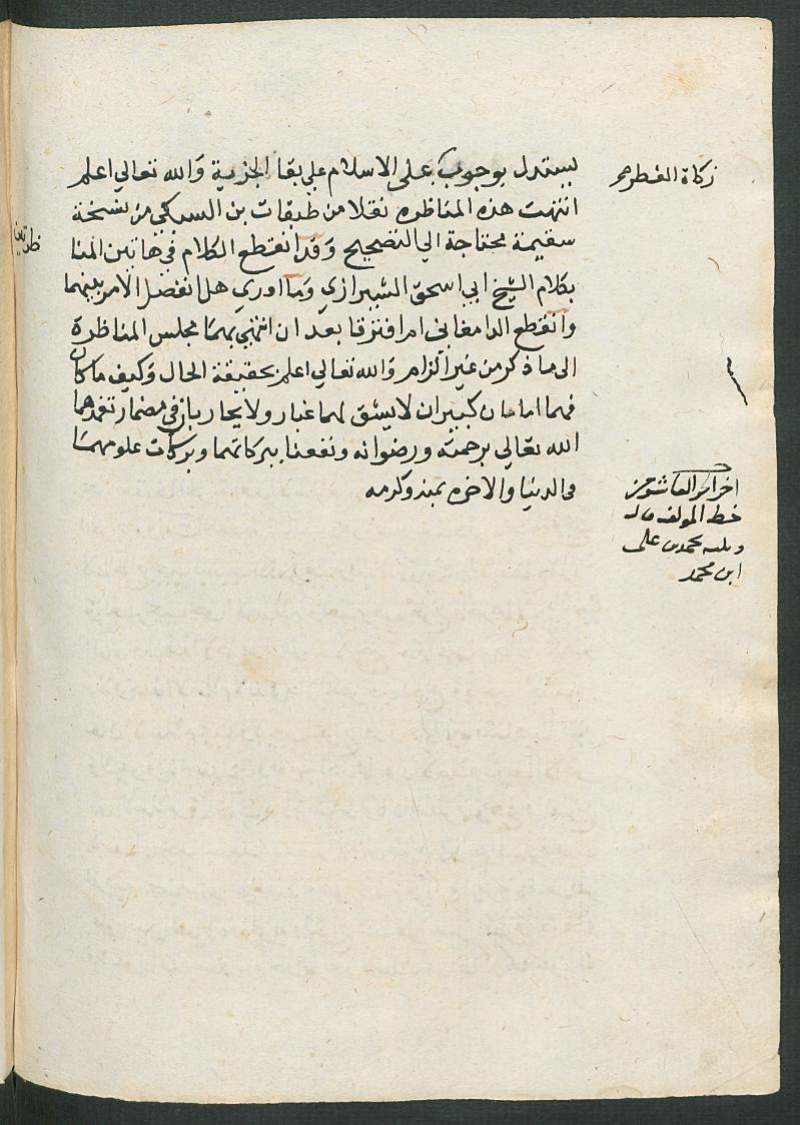 يستدل بوجوب على الاسلام على بقا الجزية والله تعالى اعلم
انتهت هذه المناظره نقلا من طبقات بن السبكي من نسخة
سقيمة محتاجة الي التصحيح وقد انقطع الكلام في هاتين المنا
ظرتين
بكلام الشيخ ابي اسحق الشيرازي وما ادري هل انفصل الامر بينهما
وانقطع الدامغاني ام افترقا بعد ان انتهي بهما مجلس المناظرة
الى ما ذكر من غير الزام والله تعالي اعلم بحقيقة الحال وكيف ما كان
فهما امامان كبيران لا يشق لهما غبار ولا يجاريان في مضمار تغمدهما
الله تعالي برحمته ورضوانه ونفعنا ببركاتهما وبركات علومهما
في الدنيا والاخره بمنه وكرمه
زكاة الفطر صح
اخر الجز العاشر من
خط المولف قال
وكتبه محمد بن على
ابن محمد